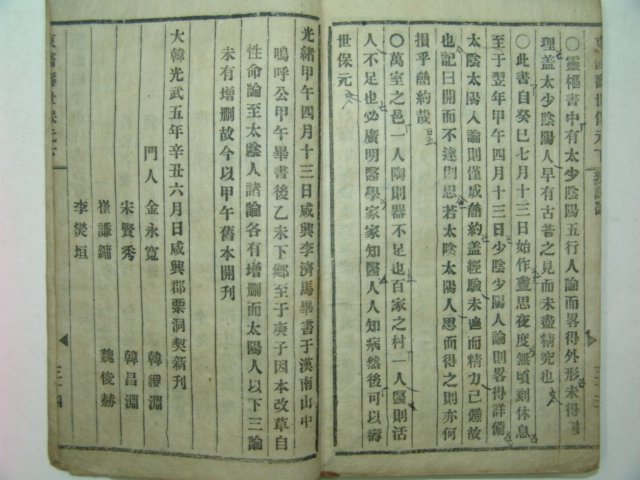 ○靈樞書中有太少陰陽五行人論而畧得外形未得臟
理盖太少陰陽人早有古昔之見而未盡精究也
○此書自癸巳七月十三日始作晝思夜度無頃刻休息
至于翌年甲午四月十三日少陰少陽人論則畧得詳備
太陰太陽人論則僅成簡約盖經驗未遍而精力已憊故
也記曰開而不達則思若太陰太陽人思而得之則亦何
損乎簡約哉
○萬室之邑一人陶則器不足也百家之村一人醫則活
人不足也必廣明醫學家家知醫人人知病然後可以壽
世保元
光緒甲午四月十三日咸興李濟馬畢書于漢南山中
嗚呼公甲午畢書後乙未下鄉至于庚子因本改草自
性命論至太陰人諸論各有增删而太陽人以下三論
未有增删故今以甲午舊本開刊
大韓光武五年辛丑六月日咸興郡栗洞契新刊
門人 金永寬 韓稷淵
宋賢秀 韓昌淵
崔謙鏞 魏俊赫
李燮垣